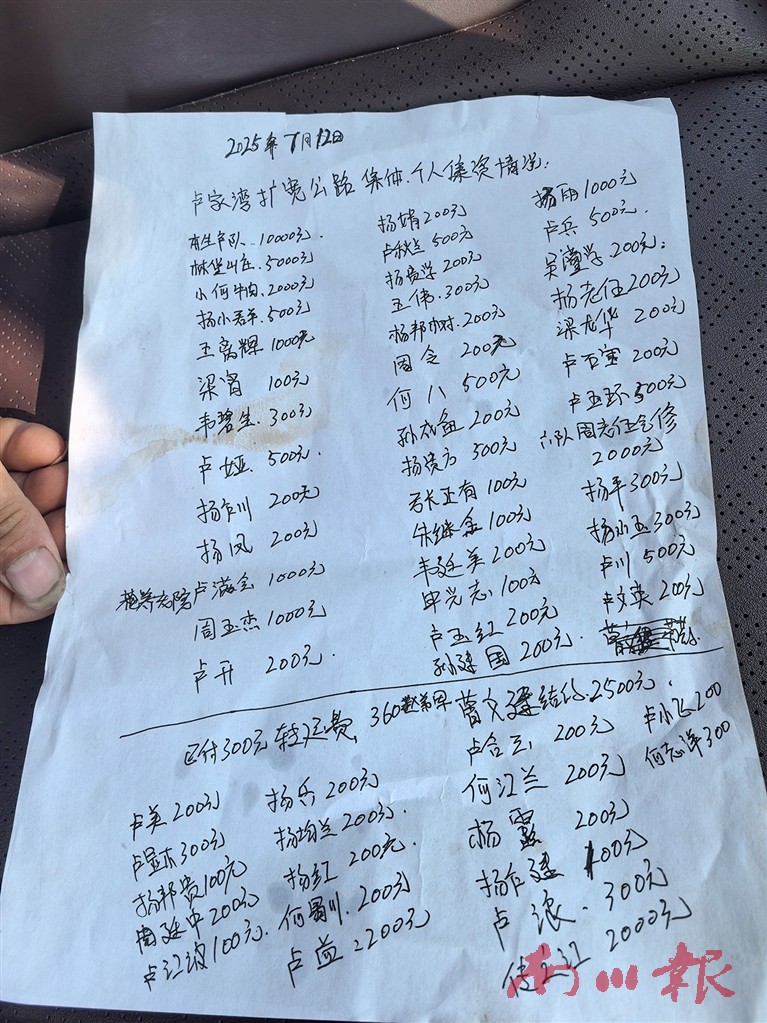 2025年7月12日
卢家湾扩宽公路集体.个人集资情况:
本生产队.10000元.
林堡山庄.5000元
小何牛肉.2000元
杨小春.500元
王离辉 1000元
梁宵 100元
韦碧生.300元
卢娅.500元
杨 200元
杨凤 200元
卢满全 1000元
周玉杰 1000元
卢开 200元.
杨婧 200元
卢秋兰 500元
杨贵学 200元
王伟.300元
杨邦树.200元
周令 200元
何八 500元
孙成鱼 200元
杨贵方 500元
石长正有 100元
朱继金 100元
韦廷美 200元
申兴志 100元
卢玉红 200元
孙建国 200元.
杨丽 1000元
卢兵 500元.
吴 学 200元.
杨志伍 200元
梁龙华 200元
卢百宝 200元
卢亚环 500元
六队周志伍会修
2000元
杨平 300元
杨小玉 300元
卢川 500元
卢文英 200元
已付300元转运费, 360 曹文建 2500元.
卢美 200元
卢显木 300元
杨邦贵 100元
周廷中 200元
卢江波 100元.
杨兵 200元
杨均兰 200元.
杨红 200元.
何蜀川.200元
卢益 2200元
卢合云 200元
何江兰 200元
杨露 200元
杨 建 100元
卢浪.300元
江 2000元
卢小飞 200
何志洋 300
南川報